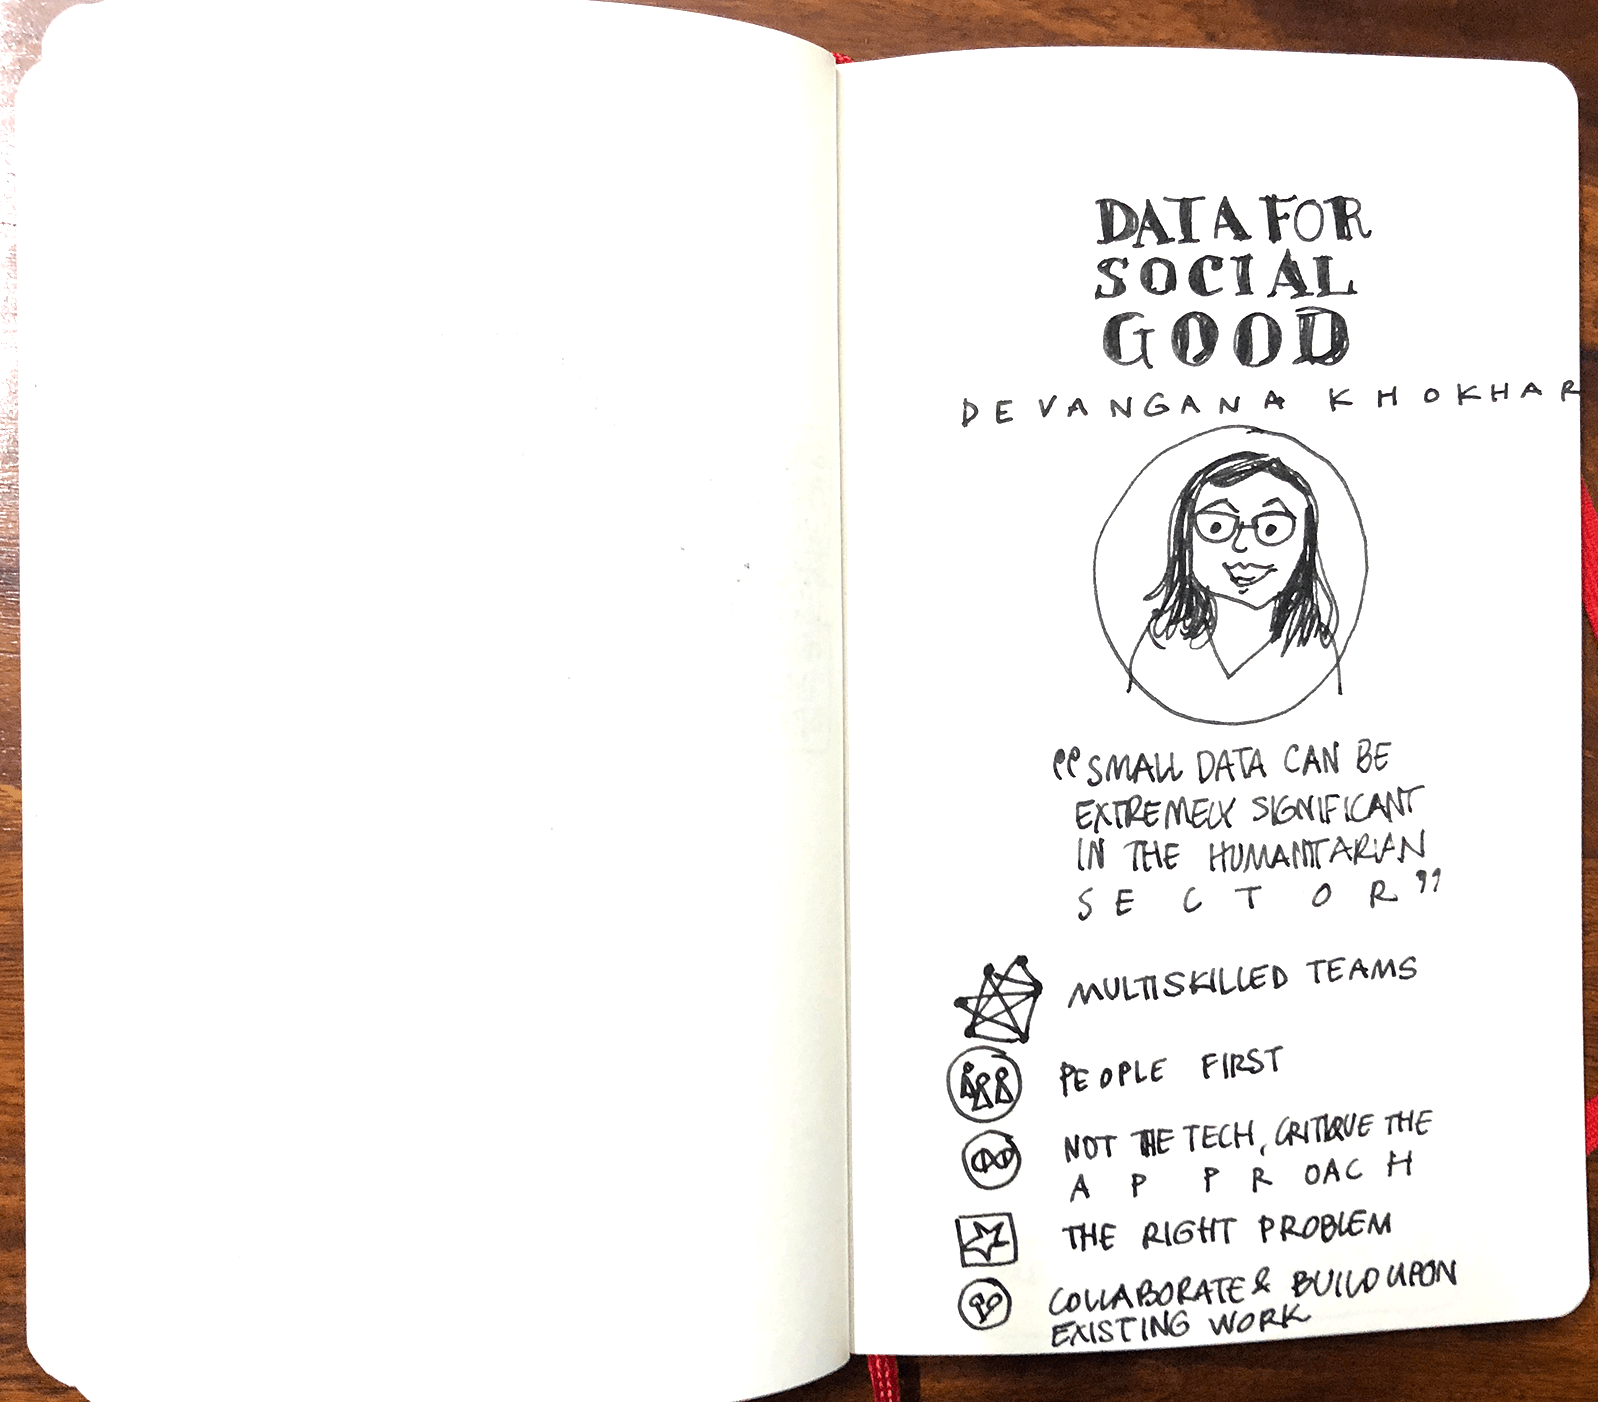 DATA FOR
SOCIAL
GOOD
DEVANGANA KHOKHAR
“SMALL DATA CAN BE
EXTREMELY SIGNIFICANT
IN THE HUMANITARIAN
SECTOR”
MULTISKILLED TEAMS
PEOPLE FIRST
NOT THE TECH, CRITIQUE THE
APPROACH
THE RIGHT PROBLEM
COLLABORATE & BUILD UPON
EXISTING WORK